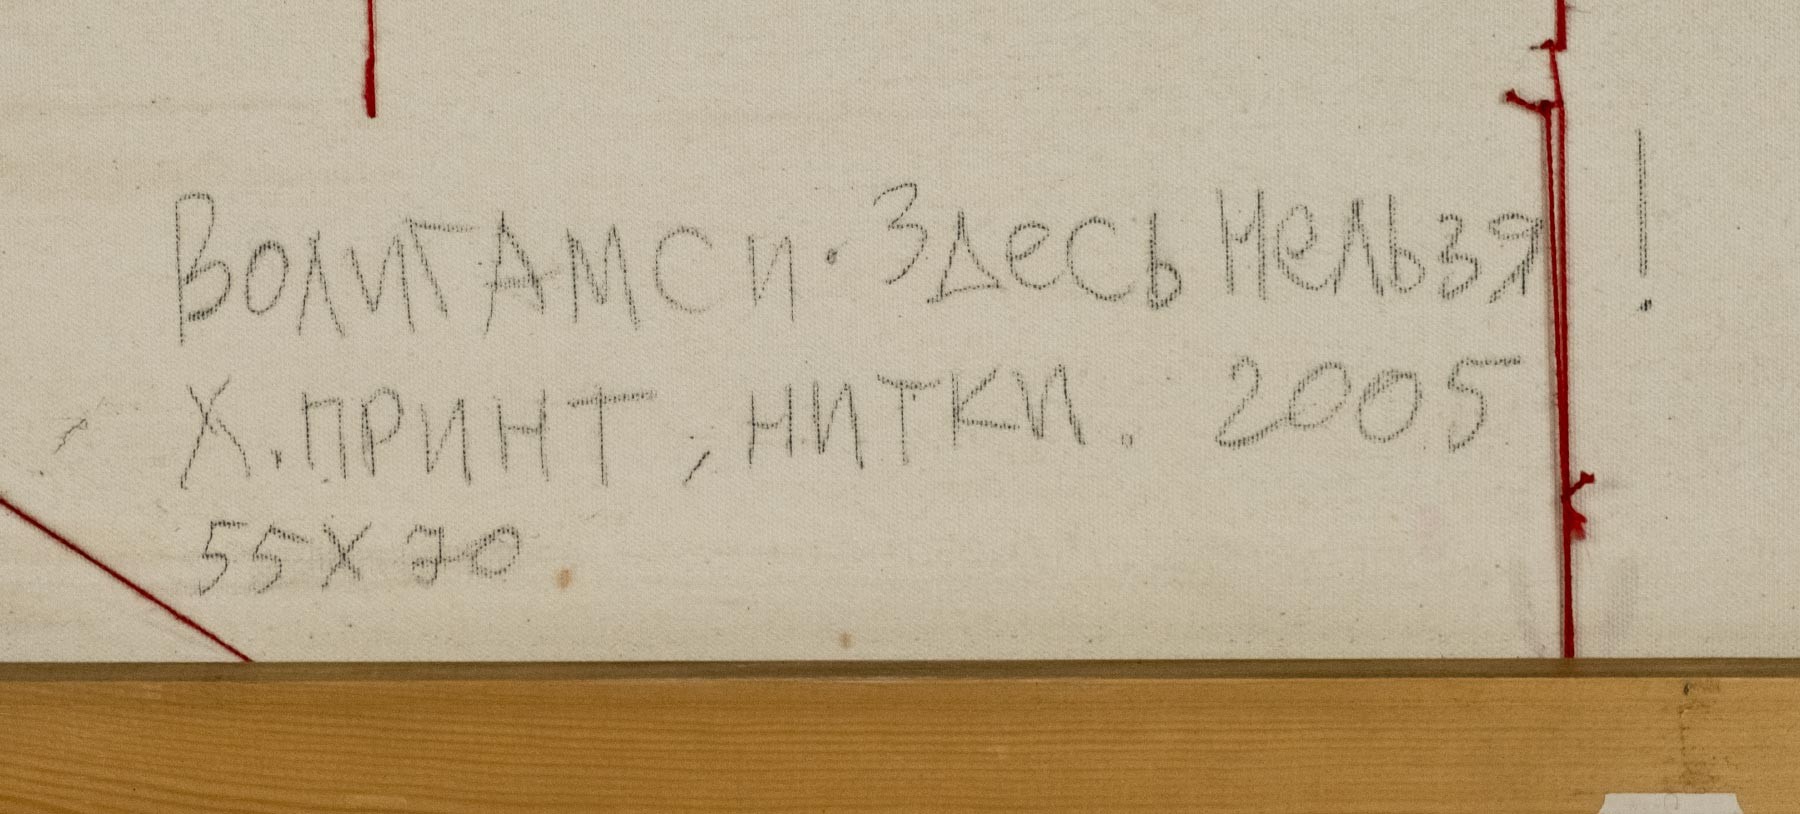 ВолигАмси. Здесь Нельзя!
Х. принт, нитки. 2005
55Х70